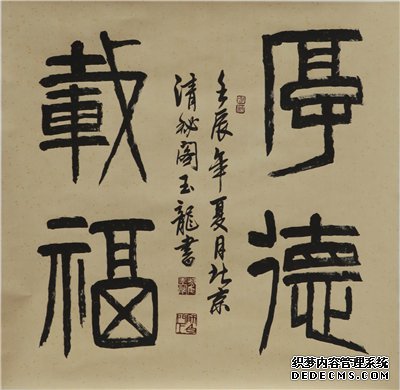 厚德
載福
壬辰年夏月北京
清秘閣玉龍書
织梦内容管理系统
DEDECMS.COM